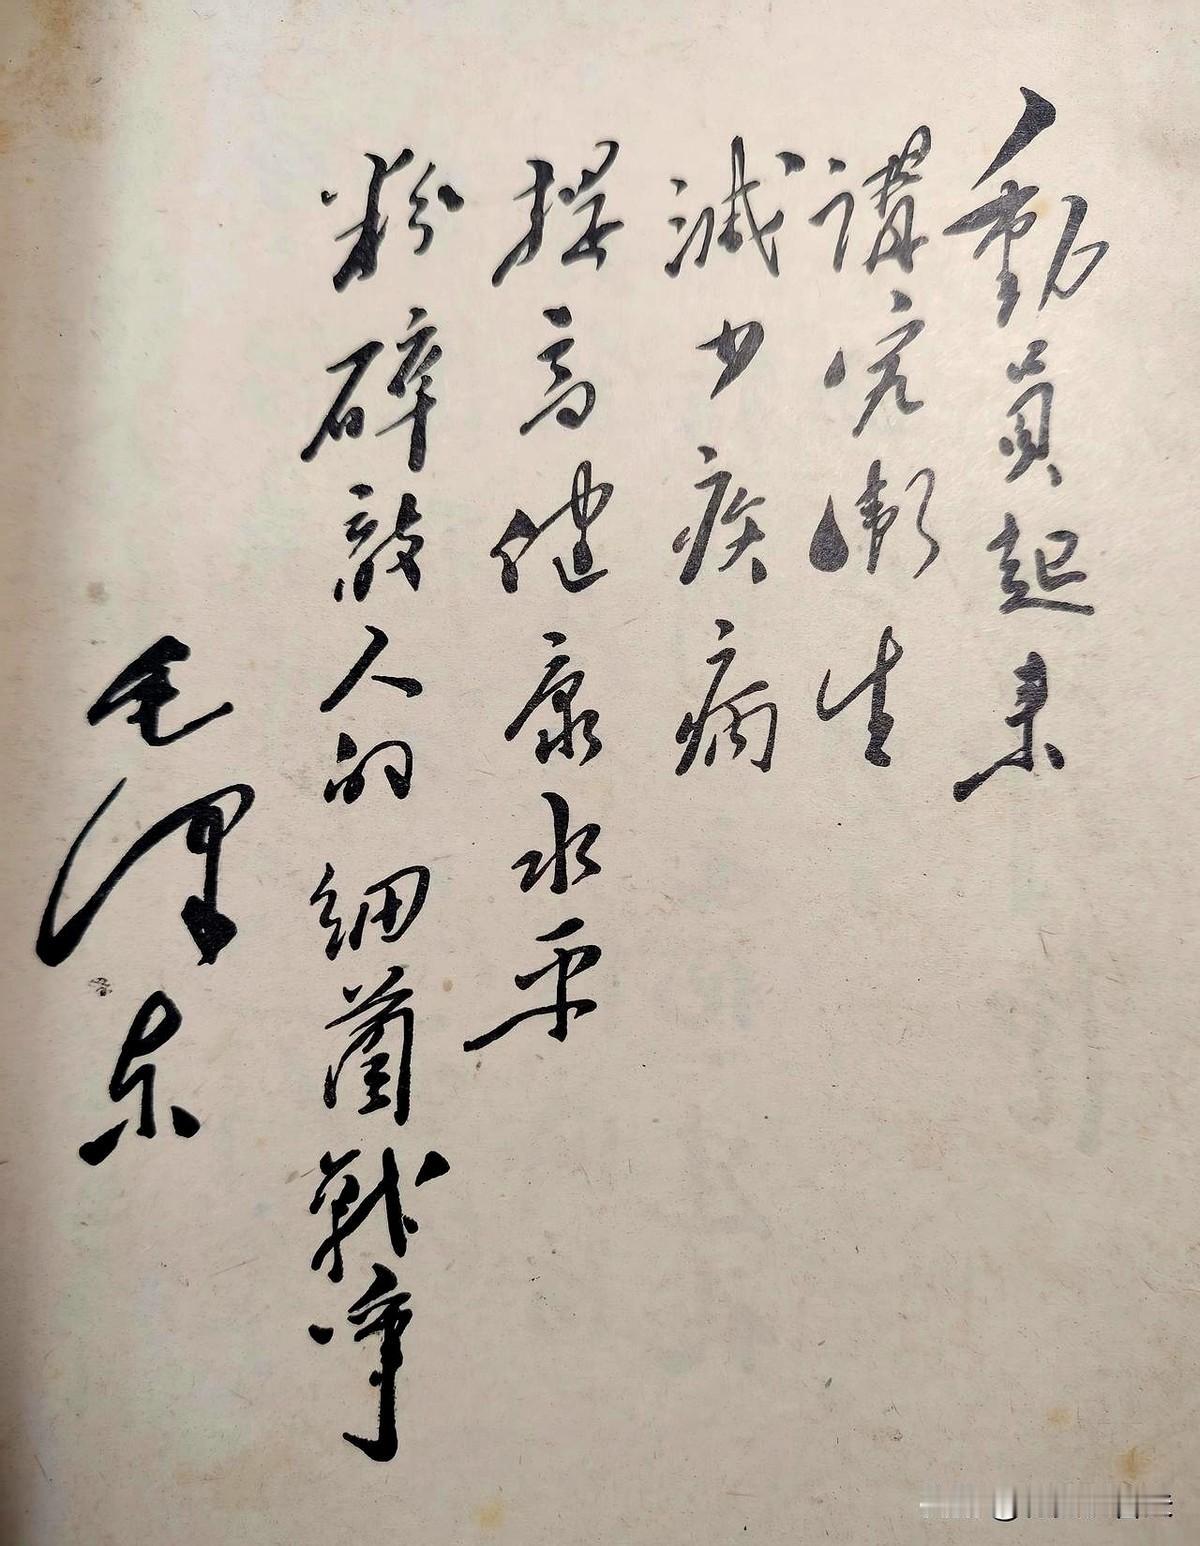 動員起来
講究衛生
減少疾病
提高健康水平
粉碎敌人的细菌戰争
毛澤东